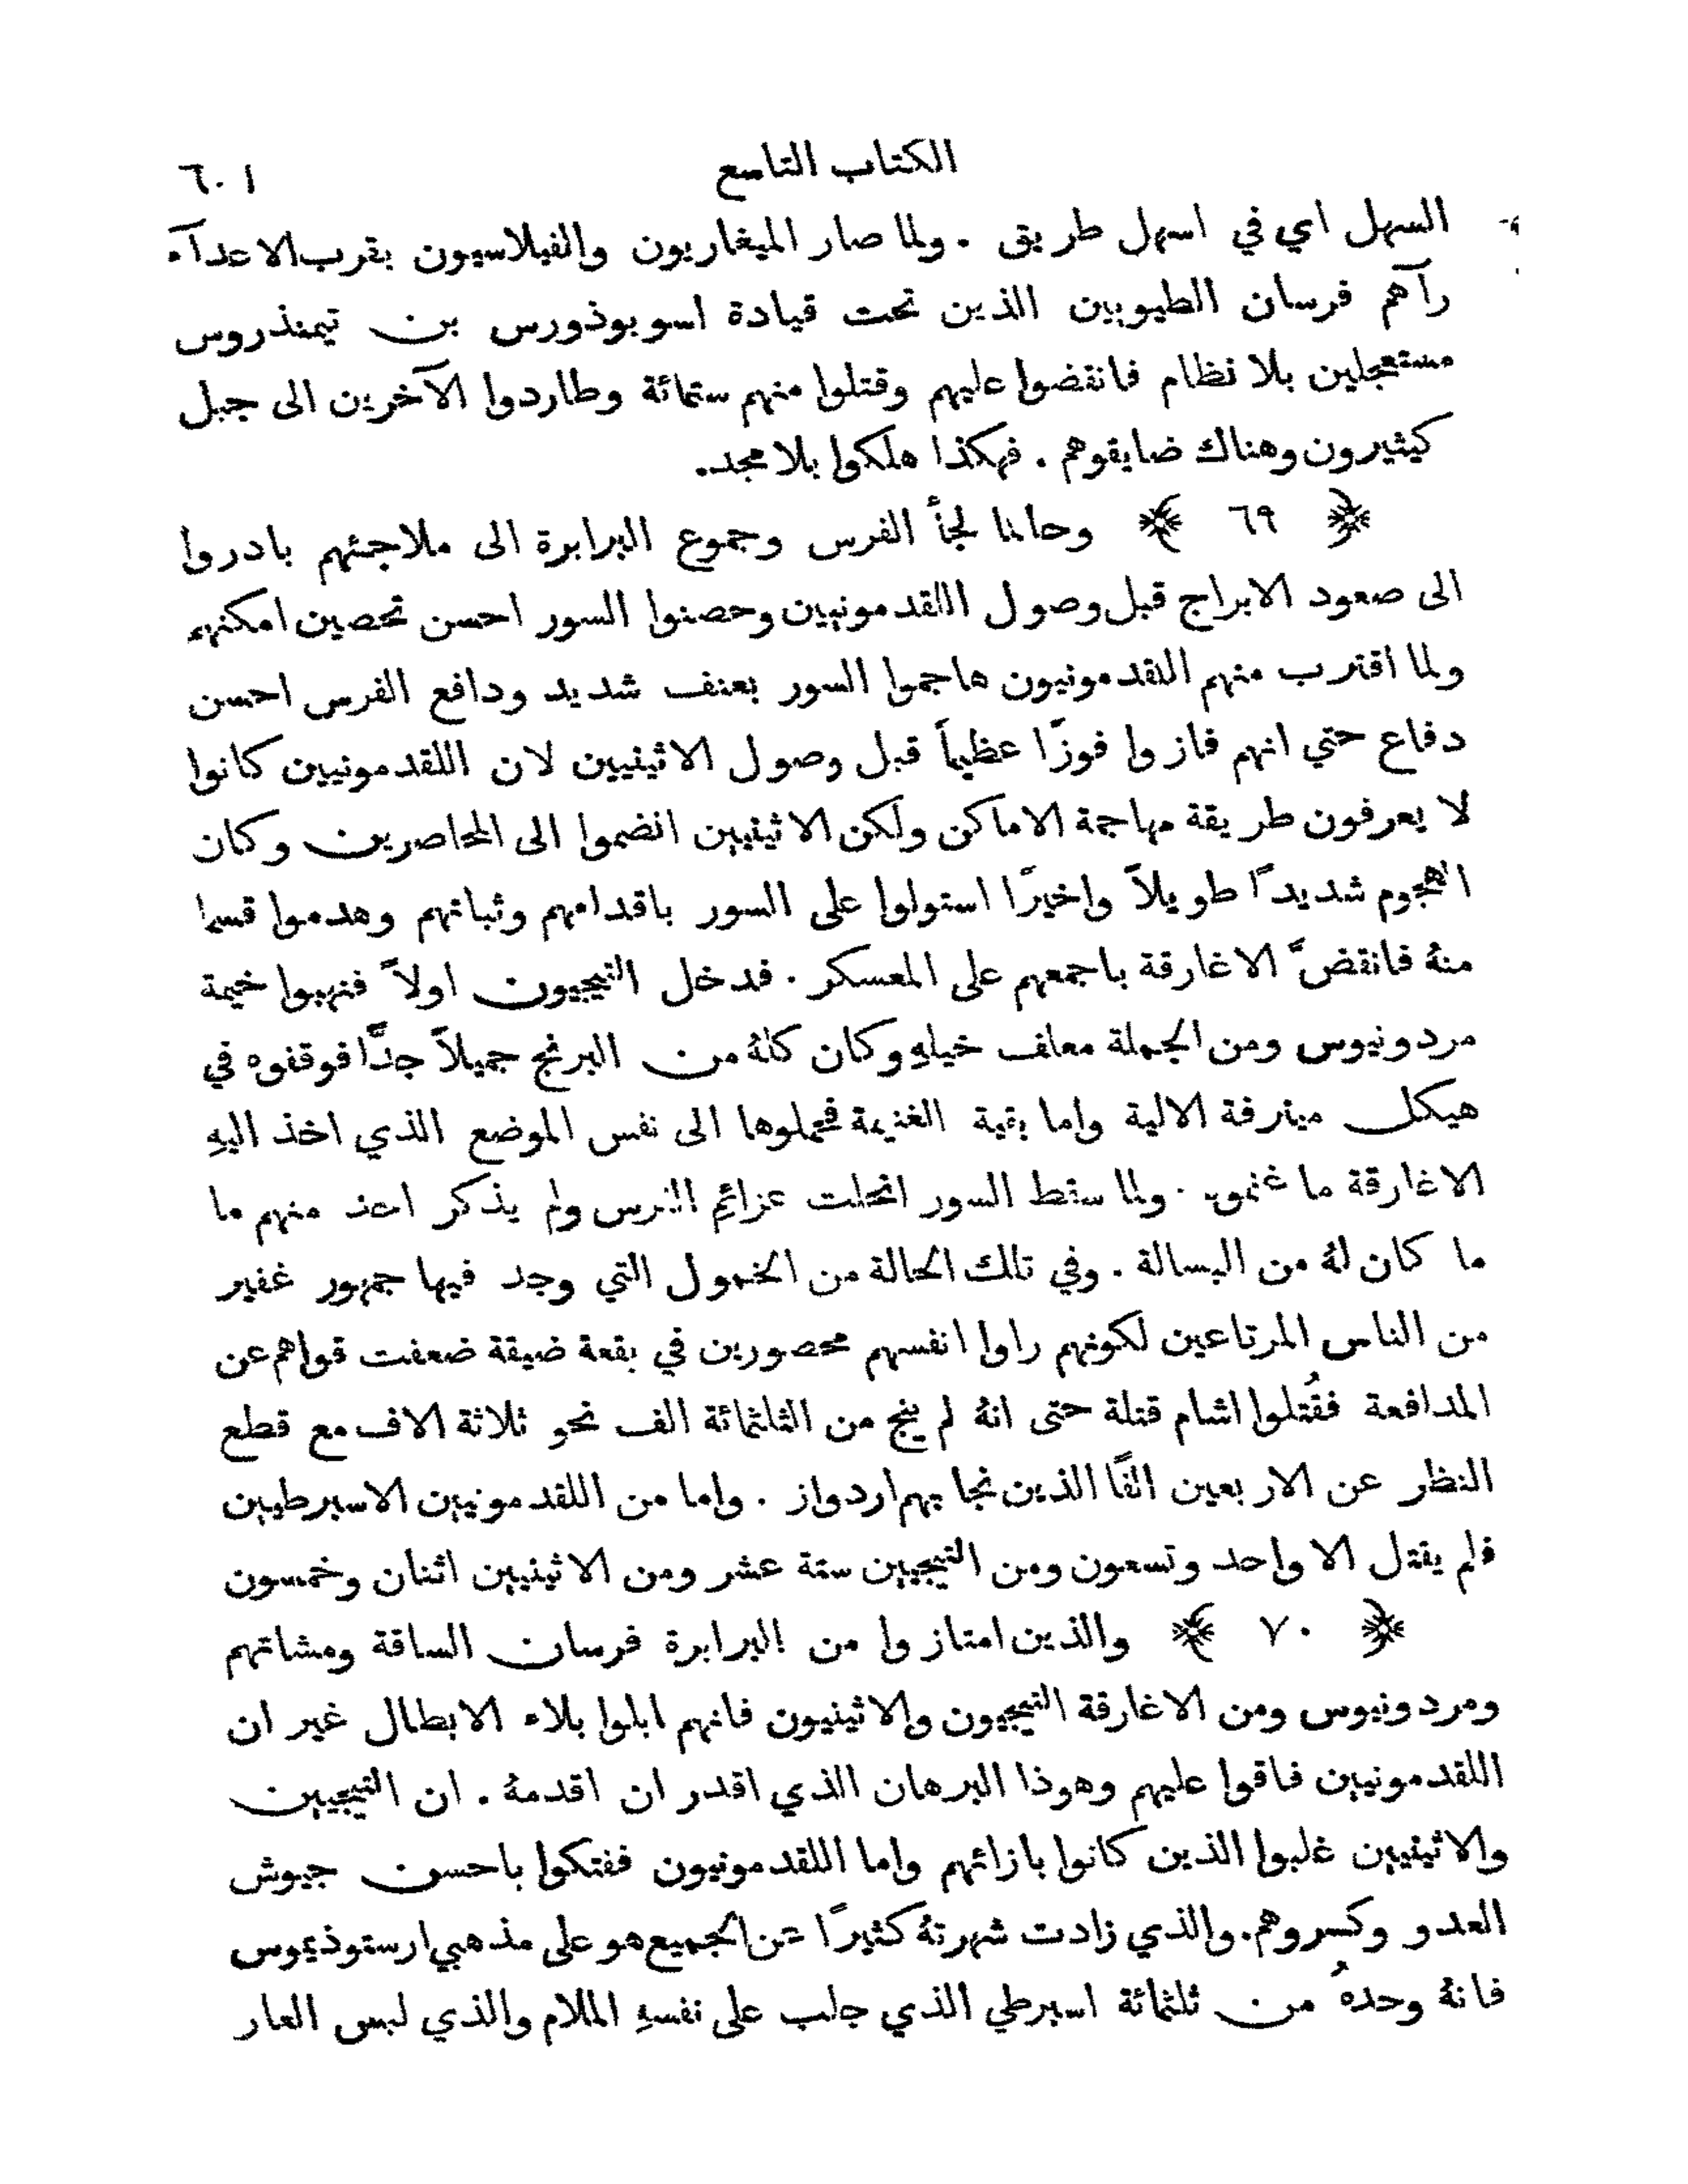 الكتاب التاسع ٦٠١
السهل اي في اسهل طريق . ولما صار الميغاريون والفيلاسيون بقرب الاعدآء
رآهم فرسان الطيوبين الذين تحت قيادة اسوبوذورس بن تيمنذروس
مستعجلين بلا نظام فانقضوا عليهم وقتلوا منهم ستمائة وطاردوا الآخرين الى جبل
كيثيرون وهناك ضايقوهم . فهكذا هلكوا بلا مجد.
﴿ ٦٩ ﴾ وحالما لجأ الفرس وجموع البرابرة الى ملاجئهم بادروا
الى صعود الابراج قبل وصول اللقدمونيين وحصنوا السور احسن تحصين امكنهم
ولما اقترب منهم اللقدمونيون هاجموا السور بعنف شديد ودافع الفرس احسن
دفاع حتي انهم فازوا فوزًا عظيماً قبل وصول الاثينيين لان اللقدمونيين كانوا
لا يعرفون طريقة مهاجمة الاماكن ولكن الاثينيين انضموا الى المحاصرين وكان
الهجوم شديدًا طويلاً واخيرًا استولوا على السور باقدامهم وثباتهم وهدموا قسما
منهُ فانقضَّ الاغارقة باجمعهم على المعسكر . فدخل التيجيون اولاً فنهبوا خيمة
مردونيوس ومن الجملة معلف خيلهِ وكان كلهُ من البرنج جميلاً جدًّا فوقفوه في
هيكل مينرفة الالية واما بقية الغنيمة فحملوها الى نفس الموضع الذي اخذ اليهِ
الاغارقة ما غنموه . ولما سقط السور انحلت عزائم الفرس ولم يذكر احد منهم ما
ما كان لهُ من البسالة . وفي تلك الحالة من الخمول التي وجد فيها جمهور غفير
من الناس المرتاعين لكونهم راوا انفسهم محصورين في بقعة ضيقة ضعفت قواهم عن
المدافعة فقُتلوا اشام قتلة حتى انهُ لم ينج من الثلثمائة الف نحو ثلاثة الاف مع قطع
النظر عن الاربعين الفًا الذين نجا بهم اردواز . واما من اللقدمونيين الاسبرطيين
فلم يقتل الا واحد وتسعون ومن التيجيين ستة عشر ومن الاثينيين اثنان وخمسون
﴿ ٧٠ ﴾ والذين امتازوا من البرابرة فرسان الساقة ومشاتهم
ومردونيوس ومن الاغارقة التيجيون والاثينيون فانهم ابلوا بلاء الابطال غير ان
اللقدمونيين فاقوا عليهم وهوذا البرهان الذي اقدر ان اقدمهُ . ان التيجيين
والاثينيين غلبوا الذين كانوا بازائهم واما اللقدمونيون ففتكوا باحسن جيوش
العدو وكسروهم. والذي زادت شهرتهُ كثيرًا عن الجميع هو على مذهبي ارستوذيموس
فانهُ وحدهُ من ثلثمائة اسبرطي الذي جلب على نفسهِ الملام والذي لبس العار